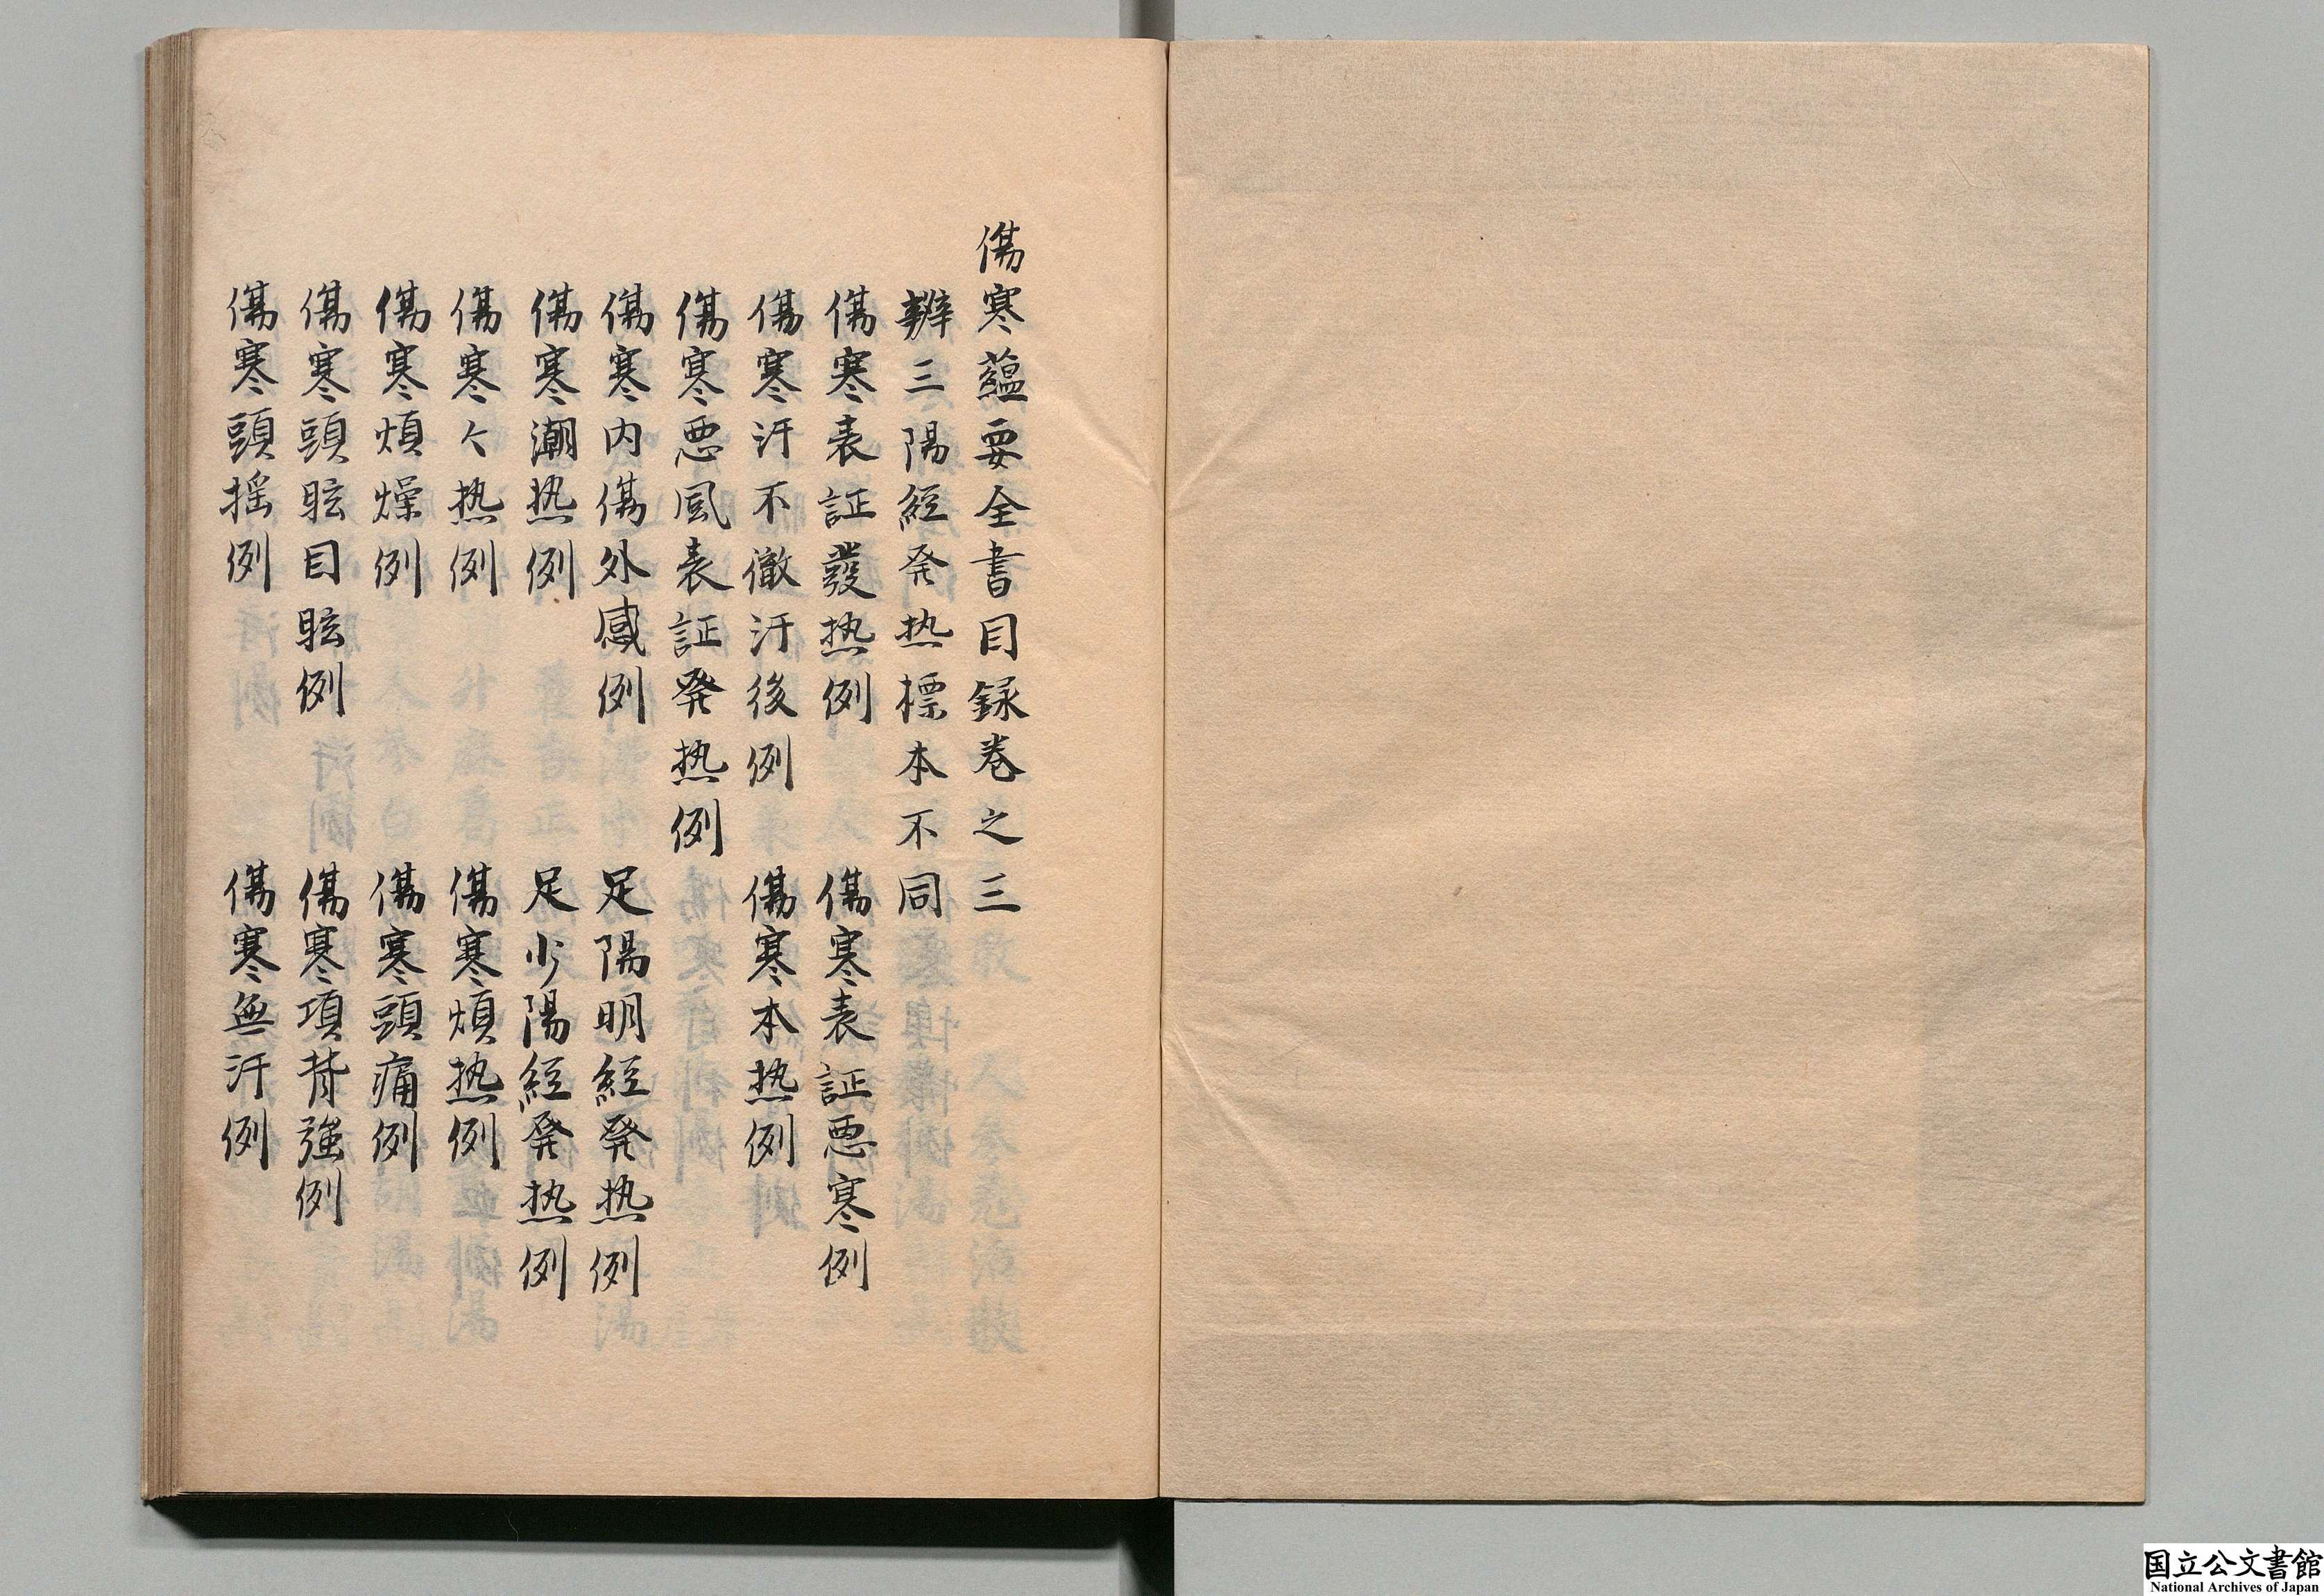 傷寒蘊要全書目録巻之三
辨三陽経発热標本不同
傷寒表証發热例　傷寒表証悪寒例
傷寒汗不徹汗後例　傷寒本热例
傷寒悪風表証発热例
傷寒内傷外感例　足陽明経発热例
傷寒潮热例　足少陽経発热例
傷寒々热例　傷寒煩热例
傷寒煩燥例　傷寒頭痛例
傷寒頭眩目眩例　傷寒項背強例
傷寒頭揺例　傷寒無汗例
国立公文書館
National Archives of Japan